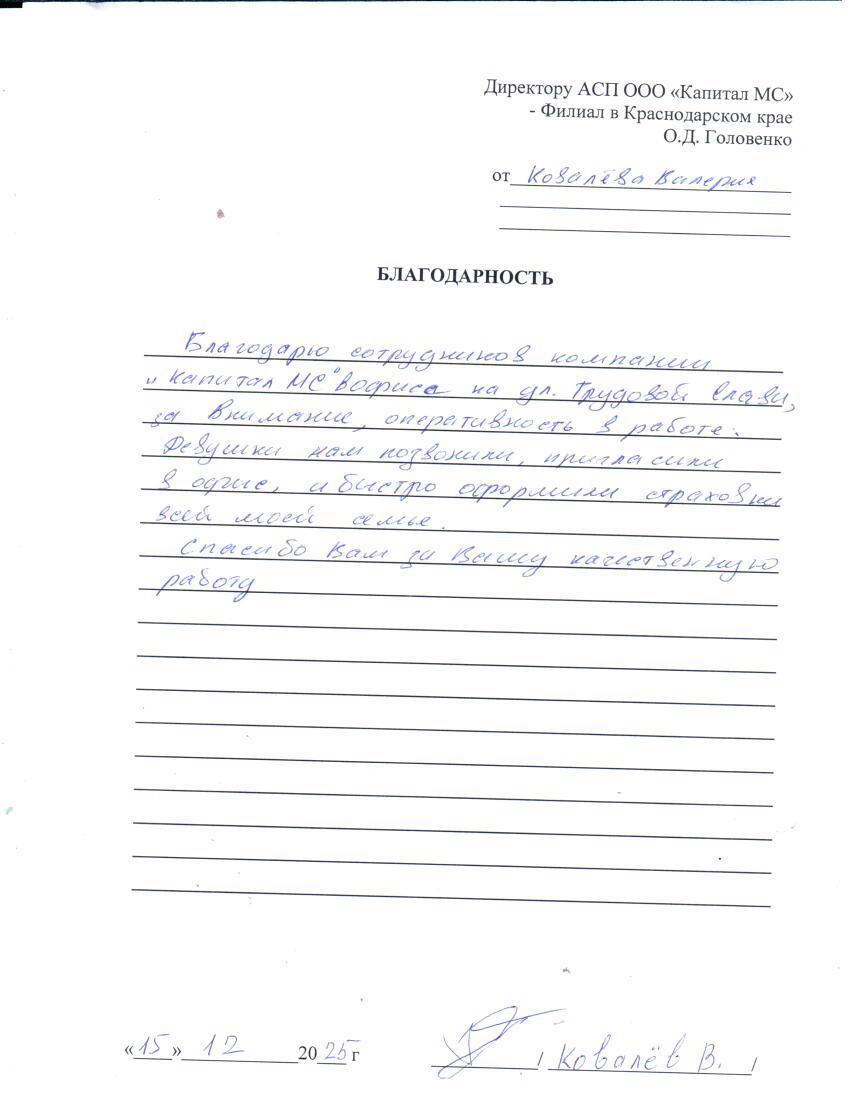 Директору АСП ООО «Капитал МС»
- Филиал в Краснодарском крае
О.Д. Головенко
от Ковалёва Валерия
БЛАГОДАРНОСТЬ
Благодарю сотрудников компании
"Капитал МС" в офисе на ул. Трудовой Славы,
за внимание, оперативность в работе.
Девушки нам позвонили, пригласили
в офис, и быстро оформили страховки
всей моей семье.
Спасибо Вам за Вашу качественную
работу
«15» 12 2025 г / Ковалёв В. /